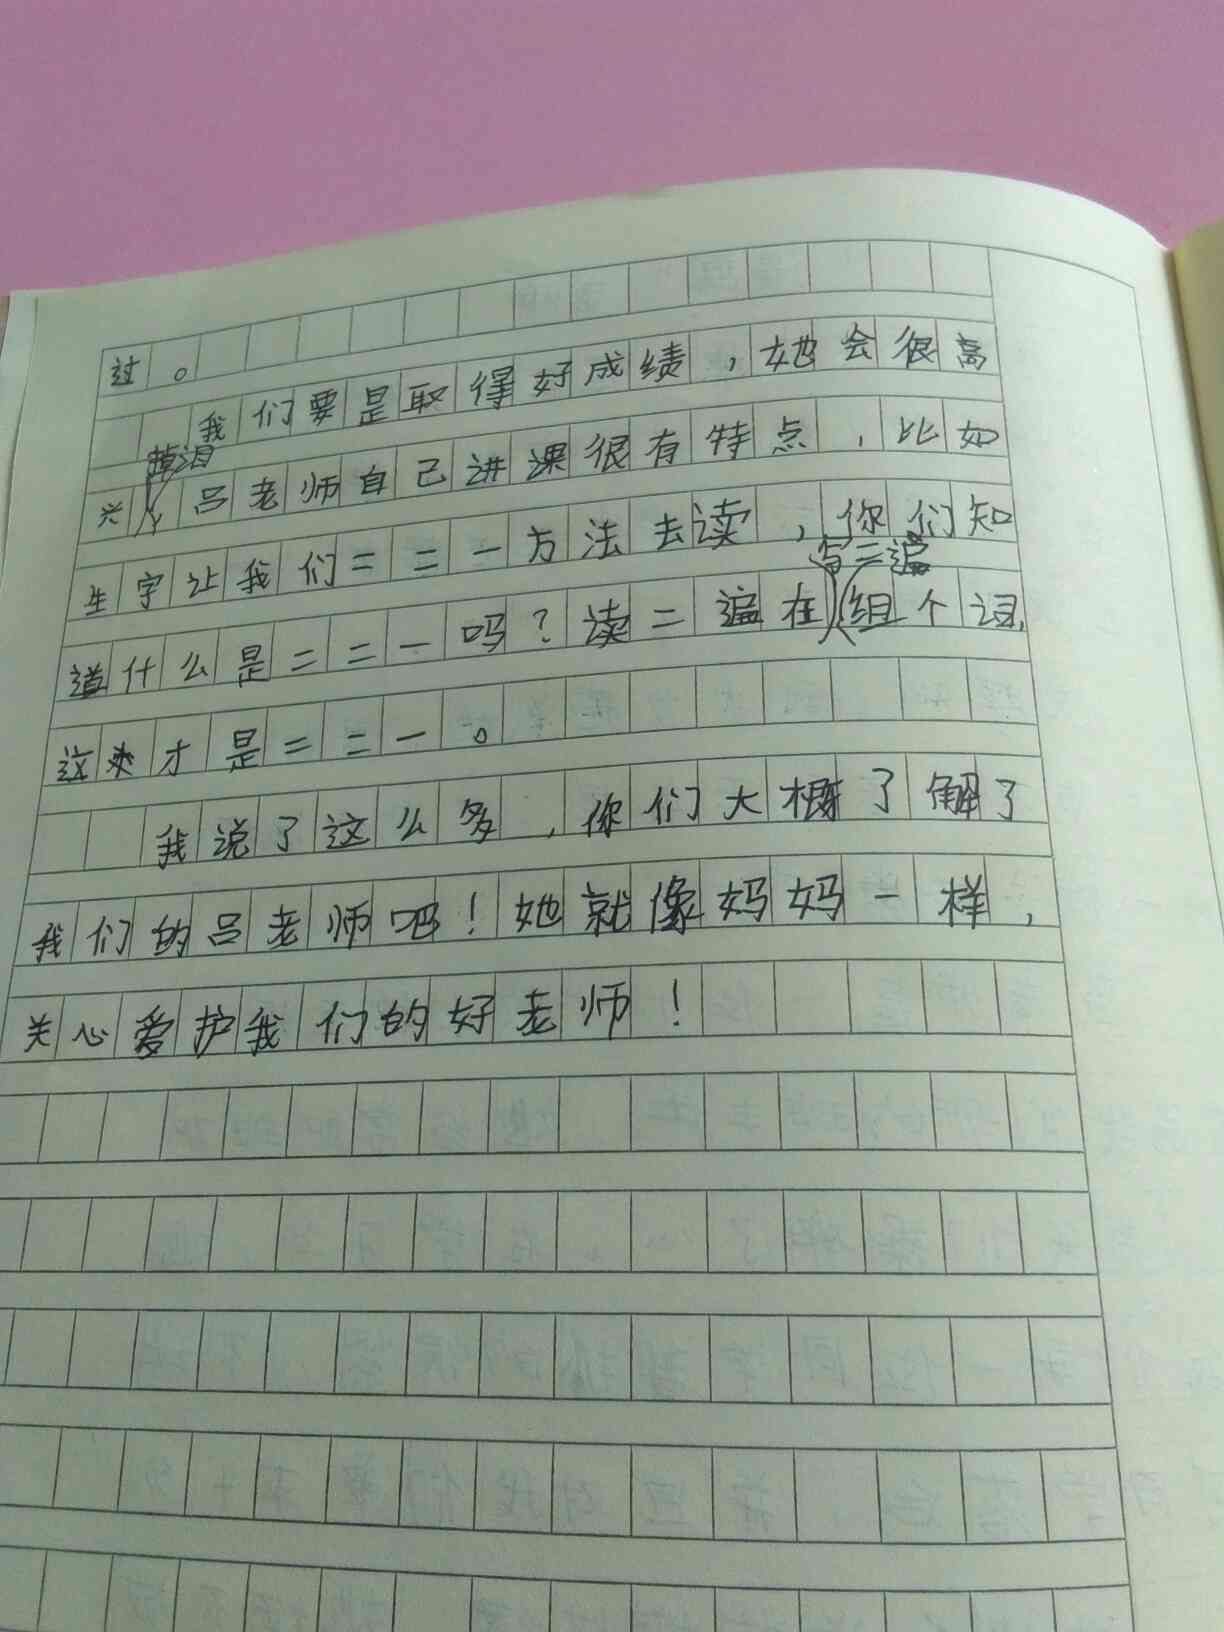 过。
我们要是取得好成绩，她会很高
掉泪
兴，吕老师自己讲课很有特点，比如
生字让我们二二一方法去读，你们知
写二遍
道什么是二二一吗？读二遍在组个词，
这来才是二二一。
我说了这么多，你们大概了解了
我们的吕老师吧！她就像妈妈一样，
关心爱护我们的好老师！